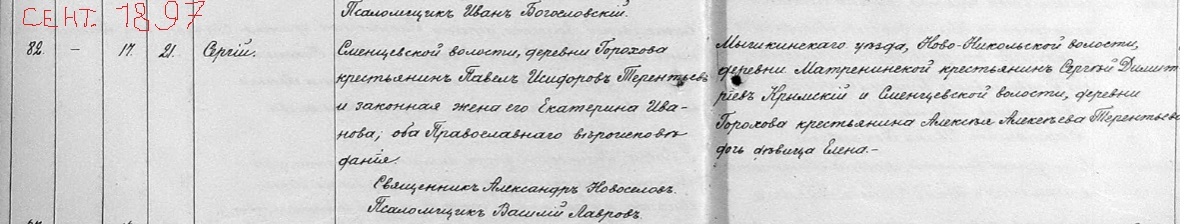 СЕНТ. 1897
Псаломщикъ Иванъ Богословскій.
82. — 17. 21. Сергій.
Сменцевской волости, деревни Горохова
крестьянинъ Павелъ Исидоровъ Терентьевъ
и законная жена его Екатерина Ива-
нова; оба Православнаго вѣроисповѣ
данія.
Священникъ Александръ Новоселовъ.
Псаломщикъ Василій Лавровъ
Мышкинскаго уѣзда, Ново-Никольской волости,
деревни Матренинской крестьянинъ Сергѣй Димит
ріевъ Крымскій и Сменцевской волости, деревни
Горохова крестьянина Алексѣя Алексѣева Терентьева
дочь дѣвица Елена.-